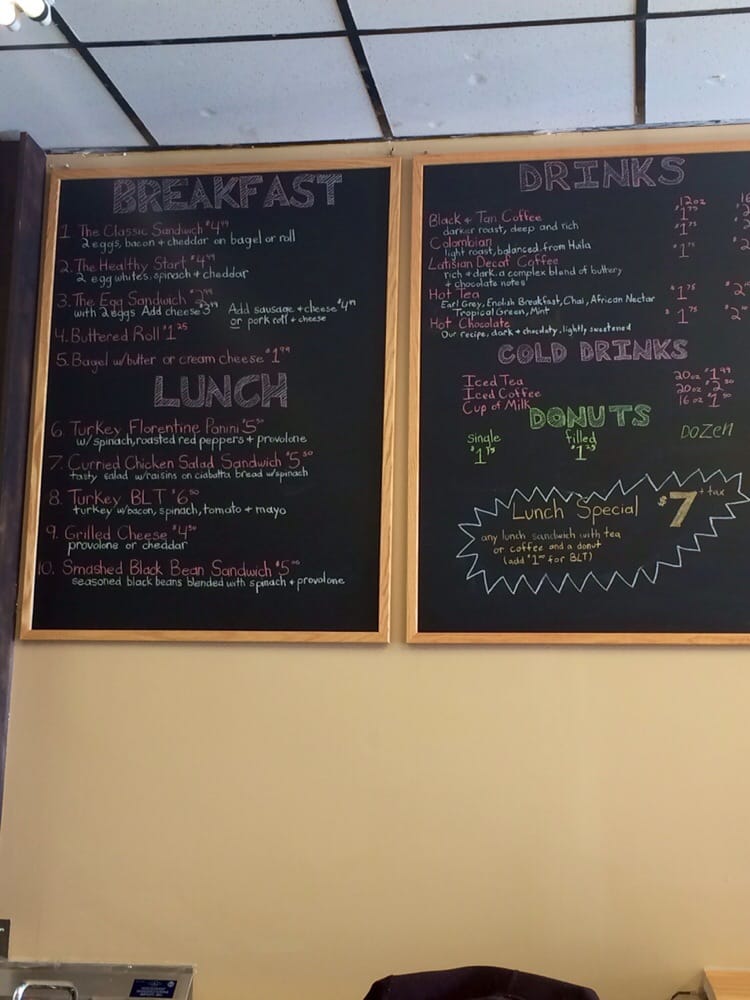 BREAKFAST
1. The Classic Sandwich $4.99
2 eggs, bacon + cheddar on bagel or roll
2. The Healthy Start $4.99
2 egg whites, spinach + cheddar
3. The Egg Sandwich
with 2 eggs Add cheese 3.99 Add sausage + cheese $4.99
or pork roll + cheese
4. Buttered Roll $1.25
5. Bagel w/butter or cream cheese $1.99
LUNCH
6. Turkey Florentine Panini $5.50
w/spinach, roasted red peppers + provolone
7. Curried Chicken Salad Sandwich $5.50
tasty salad w/raisins on ciabatta bread w/spinach
8. Turkey BLT $6.50
turkey w/bacon, spinach, tomato + mayo
9. Grilled Cheese $4.50
provolone or cheddar
10. Smashed Black Bean Sandwich $5.00
seasoned black beans blended with spinach + provolone
DRINKS
12oz
Black + Tan Coffee $1.75
darker roast, deep and rich
Colombian $1.75
light roast, balanced, from Huila
Latisian Decaf Coffee $1.75
rich + dark, a complex blend of buttery
+ chocolate notes
Hot Tea $1.75
Earl Grey, English Breakfast, Chai, African Nectar
Tropical Green, Mint
Hot Chocolate $1.75
Our recipe, dark + chocolaty, lightly sweetened
COLD DRINKS
Iced Tea 20oz $1.99
Iced Coffee 20oz $2.50
Cup of Milk 16 oz $1.50
DONUTS
single filled Dozen
$1.25
Lunch Special $7 + tax
any lunch sandwich with tea
or coffee and a donut
(add $1.00 for BLT)